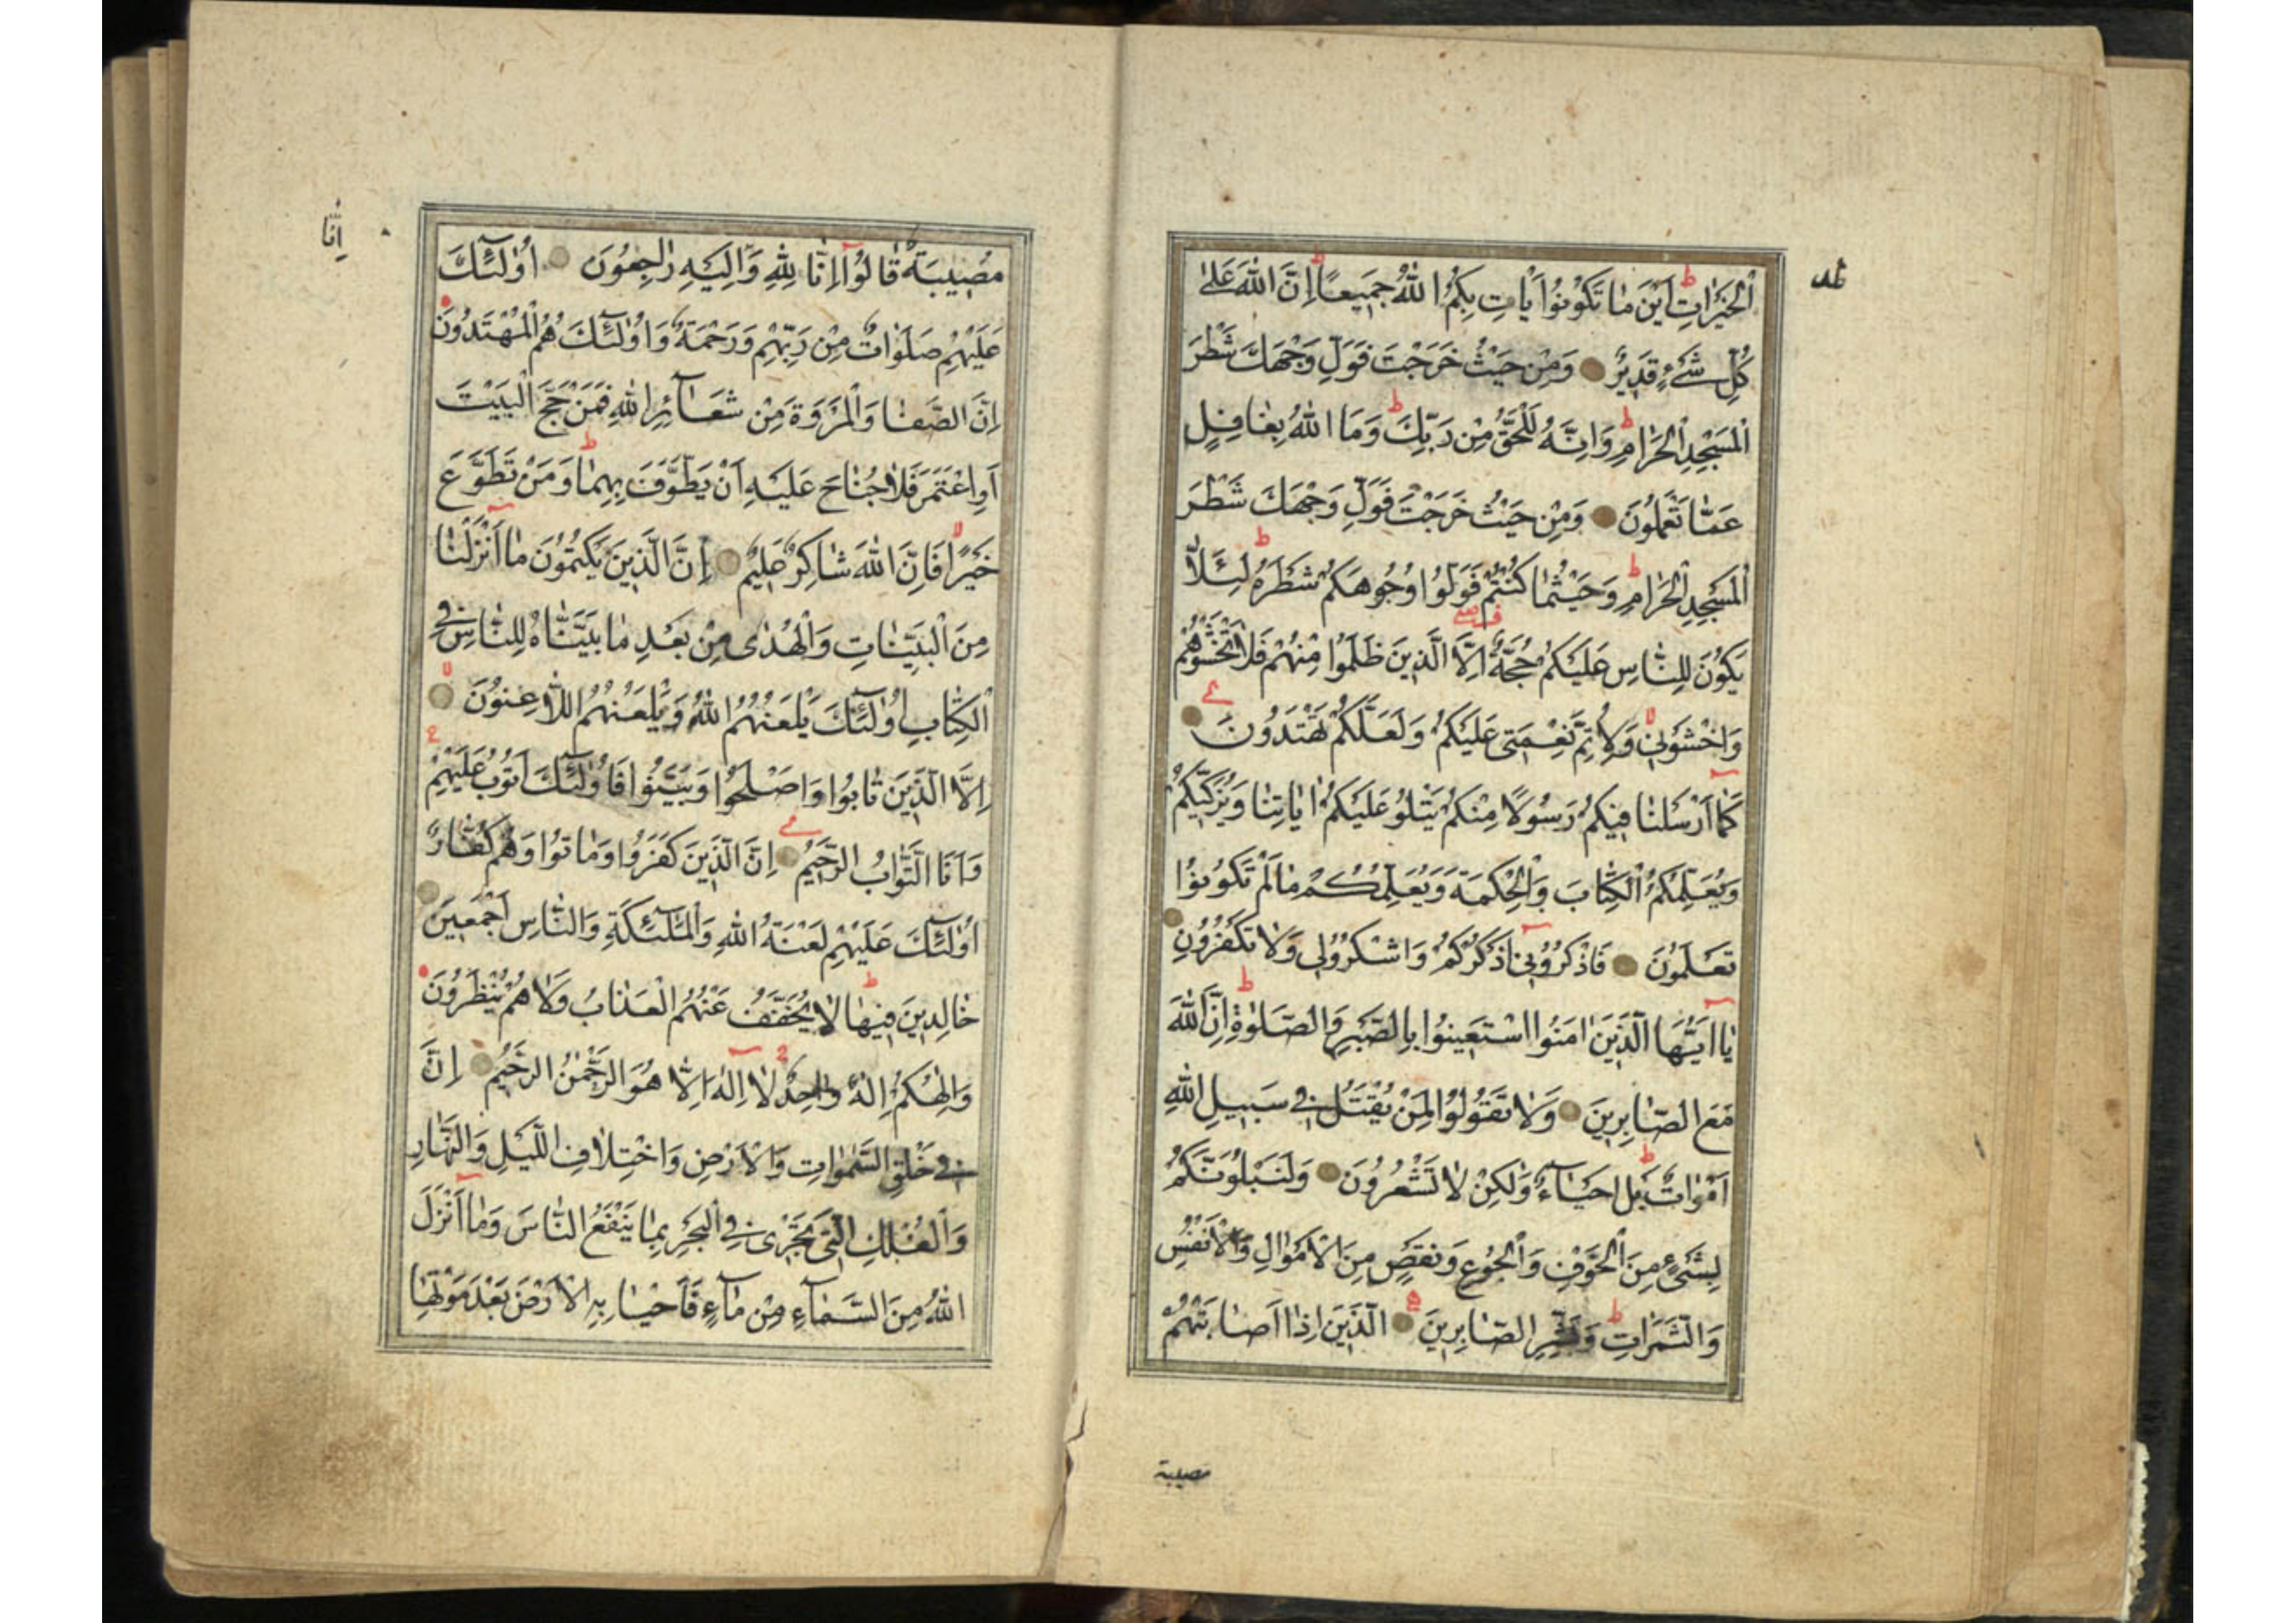 الْخَيْرَاتِ اَيْنَ مَا تَكُونُوا يَاْتِ بِكُمُ اللّٰهُ جَمِيعًا اِنَّ اللّٰهَ عَلٰى
كُلِّ شَيْءٍ قَدِيرٌ وَمِنْ حَيْثُ خَرَجْتَ فَوَلِّ وَجْهَكَ شَطْرَ
الْمَسْجِدِ الْحَرَامِ وَاِنَّهُ لَلْحَقُّ مِنْ رَبِّكَ وَمَا اللّٰهُ بِغَافِلٍ
عَمَّا تَعْمَلُونَ وَمِنْ حَيْثُ خَرَجْتَ فَوَلِّ وَجْهَكَ شَطْرَ
الْمَسْجِدِ الْحَرَامِ وَحَيْثُمَا كُنْتُمْ فَوَلُّوا وُجُوهَكُمْ شَطْرَهُ لِئَلَّا
يَكُونَ لِلنَّاسِ عَلَيْكُمْ حُجَّةٌ اِلَّا الَّذِينَ ظَلَمُوا مِنْهُمْ فَلَا تَخْشَوْهُمْ
وَاخْشَوْنِي وَلِاُتِمَّ نِعْمَتِي عَلَيْكُمْ وَلَعَلَّكُمْ تَهْتَدُونَ
كَمَا اَرْسَلْنَا فِيكُمْ رَسُولًا مِنْكُمْ يَتْلُو عَلَيْكُمْ اٰيَاتِنَا وَيُزَكِّيكُمْ
وَيُعَلِّمُكُمُ الْكِتَابَ وَالْحِكْمَةَ وَيُعَلِّمُكُمْ مَا لَمْ تَكُونُوا
تَعْلَمُونَ فَاذْكُرُونِي اَذْكُرْكُمْ وَاشْكُرُوا لِي وَلَا تَكْفُرُونِ
يَا اَيُّهَا الَّذِينَ اٰمَنُوا اسْتَعِينُوا بِالصَّبْرِ وَالصَّلٰوةِ اِنَّ اللّٰهَ
مَعَ الصَّابِرِينَ وَلَا تَقُولُوا لِمَنْ يُقْتَلُ فِي سَبِيلِ اللّٰهِ
اَمْوَاتٌ بَلْ اَحْيَاءٌ وَلٰكِنْ لَا تَشْعُرُونَ وَلَنَبْلُوَنَّكُمْ
بِشَيْءٍ مِنَ الْخَوْفِ وَالْجُوعِ وَنَقْصٍ مِنَ الْاَمْوَالِ وَالْاَنْفُسِ
وَالثَّمَرَاتِ وَبَشِّرِ الصَّابِرِينَ الَّذِينَ اِذَا اَصَابَتْهُمْ
مصيبة
مُصِيبَةٌ قَالُوا اِنَّا لِلّٰهِ وَاِنَّا اِلَيْهِ رَاجِعُونَ اُولٰئِكَ
اِنَّا
عَلَيْهِمْ صَلَوَاتٌ مِنْ رَبِّهِمْ وَرَحْمَةٌ وَاُولٰئِكَ هُمُ الْمُهْتَدُونَ
اِنَّ الصَّفَا وَالْمَرْوَةَ مِنْ شَعَائِرِ اللّٰهِ فَمَنْ حَجَّ الْبَيْتَ
اَوِ اعْتَمَرَ فَلَا جُنَاحَ عَلَيْهِ اَنْ يَطَّوَّفَ بِهِمَا وَمَنْ تَطَوَّعَ
خَيْرًا فَاِنَّ اللّٰهَ شَاكِرٌ عَلِيمٌ اِنَّ الَّذِينَ يَكْتُمُونَ مَا اَنْزَلْنَا
مِنَ الْبَيِّنَاتِ وَالْهُدٰى مِنْ بَعْدِ مَا بَيَّنَّاهُ لِلنَّاسِ فِي
الْكِتَابِ اُولٰئِكَ يَلْعَنُهُمُ اللّٰهُ وَيَلْعَنُهُمُ اللَّاعِنُونَ
اِلَّا الَّذِينَ تَابُوا وَاَصْلَحُوا وَبَيَّنُوا فَاُولٰئِكَ اَتُوبُ عَلَيْهِمْ
وَاَنَا التَّوَّابُ الرَّحِيمُ اِنَّ الَّذِينَ كَفَرُوا وَمَاتُوا وَهُمْ كُفَّارٌ
اُولٰئِكَ عَلَيْهِمْ لَعْنَةُ اللّٰهِ وَالْمَلٰئِكَةِ وَالنَّاسِ اَجْمَعِينَ
خَالِدِينَ فِيهَا لَا يُخَفَّفُ عَنْهُمُ الْعَذَابُ وَلَا هُمْ يُنْظَرُونَ
وَاِلٰهُكُمْ اِلٰهٌ وَاحِدٌ لَا اِلٰهَ اِلَّا هُوَ الرَّحْمٰنُ الرَّحِيمُ اِنَّ
فِي خَلْقِ السَّمٰوَاتِ وَالْاَرْضِ وَاخْتِلَافِ اللَّيْلِ وَالنَّهَارِ
وَالْفُلْكِ الَّتِي تَجْرِي فِي الْبَحْرِ بِمَا يَنْفَعُ النَّاسَ وَمَا اَنْزَلَ
اللّٰهُ مِنَ السَّمَاءِ مِنْ مَاءٍ فَاَحْيَا بِهِ الْاَرْضَ بَعْدَ مَوْتِهَا